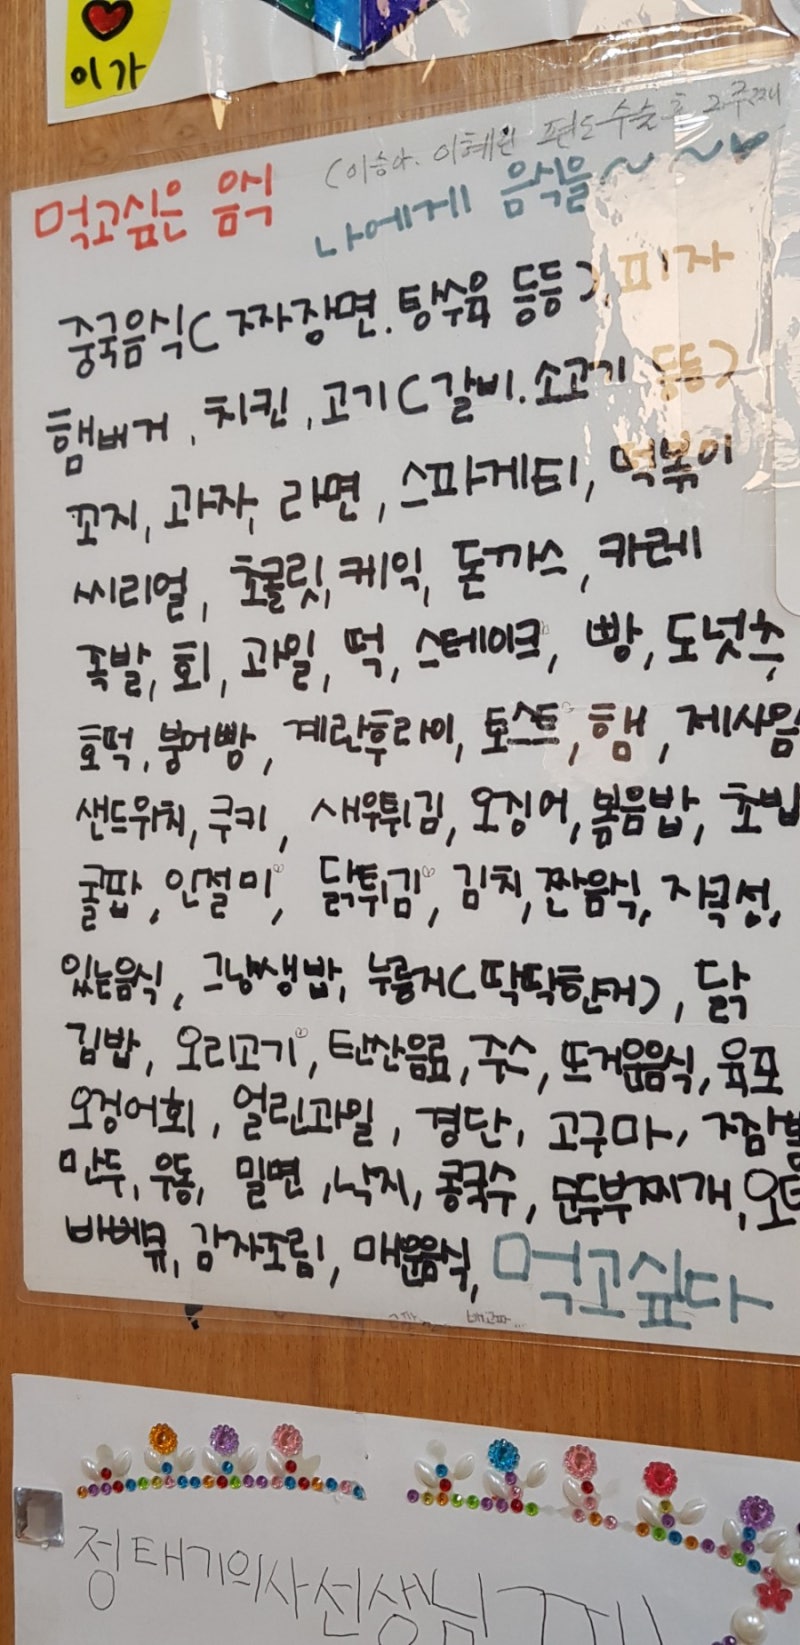 이가
(이승아. 이혜원 편도수술 후 2주째
먹고싶은 음식
나에게 음식을~~~♥
중국음식(짜장면.탕수육 등등), 피자
햄버거, 치킨, 고기(갈비.소고기 등등)
꼬지, 과자, 라면, 스파게티, 떡볶이
씨리얼, 초쿨릿, 케익, 돈까스, 카레
족발, 회, 과일, 떡, 스테이크, 빵, 도넛츠,
호떡, 붕어빵, 계란후라이, 토스트, 햄, 제사음
샌드위치, 쿠키, 새우튀김, 오징어, 볶음밥, 초밥
쿨팝, 인절미, 닭튀김, 김치, 짠음식, 자극성,
있는음식, 그냥쌩밥, 누룽지(딱딱한거), 닭
김밥, 오리고기, 탄산음료, 주스, 뜨거운음식, 육포
오징어회, 얼린과일, 경단, 고구마, 짬뽕
만두, 우동, 밀면, 낙지, 콩국수, 순두부찌개,
바베큐, 감자조림, 매운음식, 먹고싶다
배고파...
정태기의사선생님